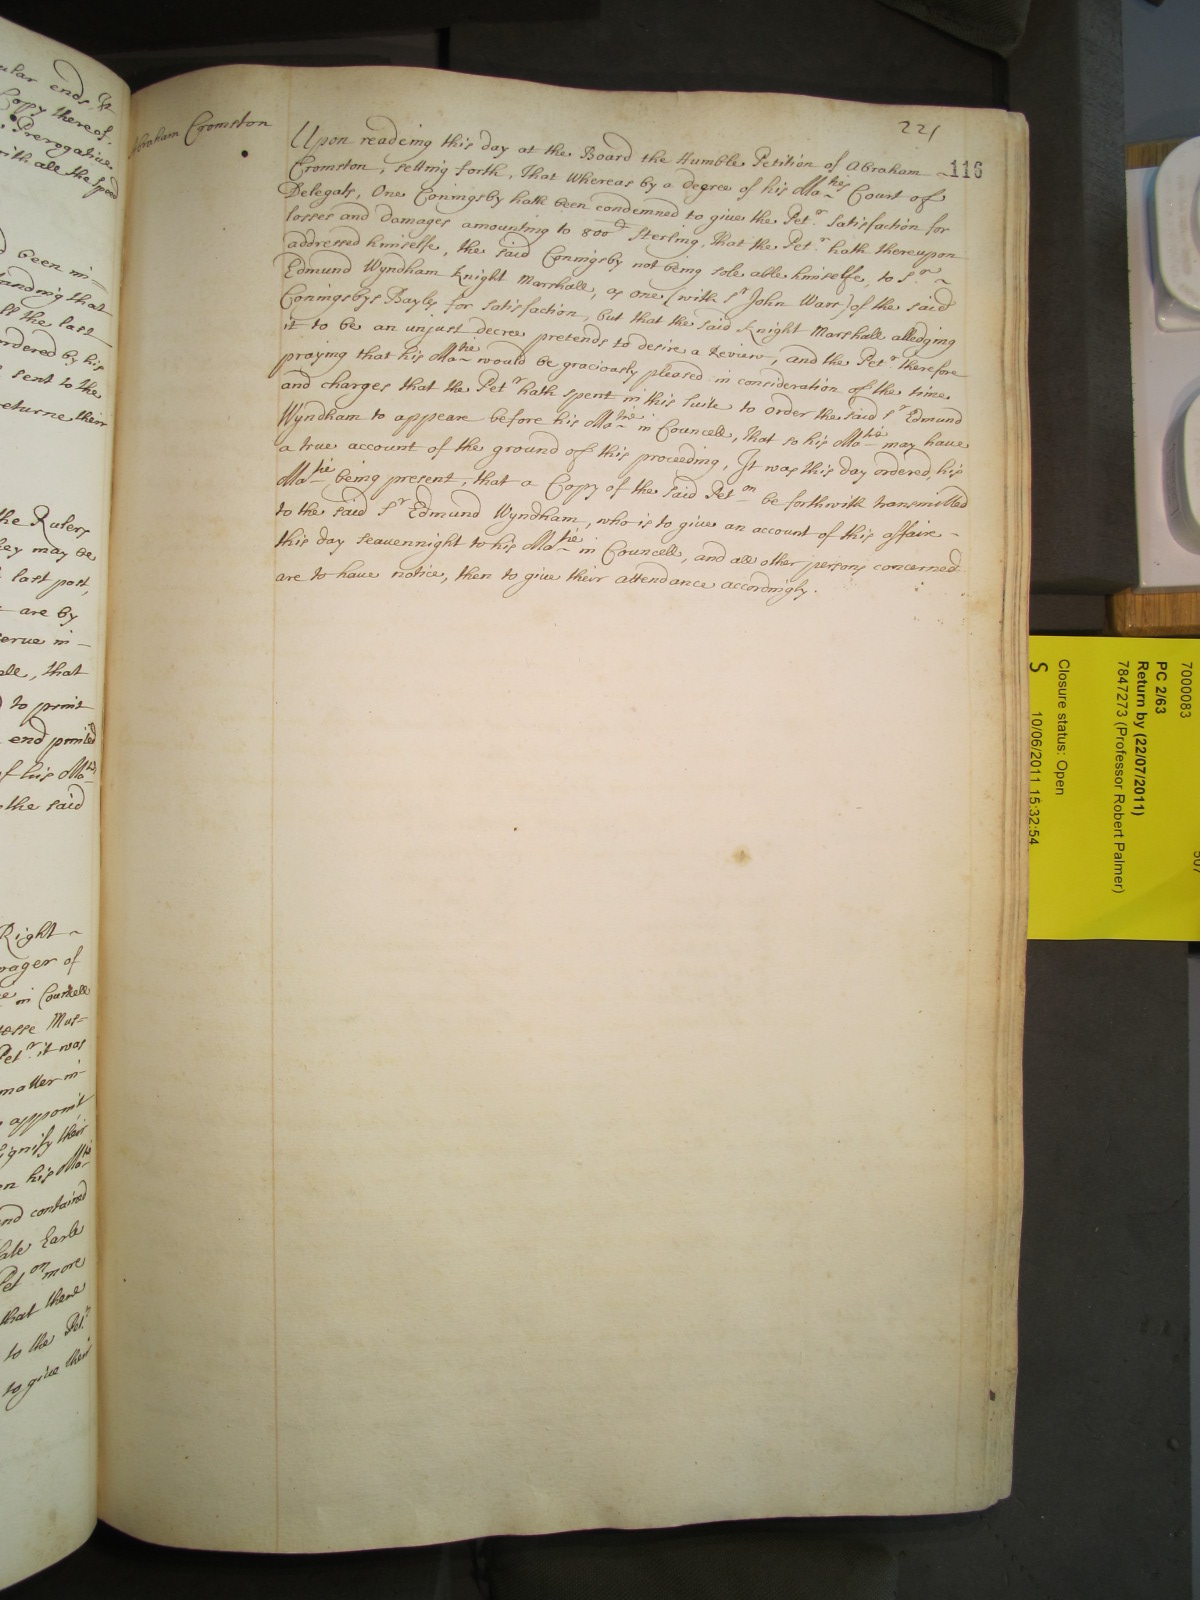 ular ends, &
Copy thereof
Prerogative
with all the speed
been in—
tanding that
ff the last
ordered by his
sent to the
returne their
the Rulers
they may be
last past,
are by
serve in—
ell, that
to print
end printed
f his Ma.tie
the said
Right ~
nager of
in Councell
Pet.r it was
matter in
appoint
signify their
en his Ma.tie
and contained
late Earle
Pet.on more
that there
to the Pet.r
to give their
221
116
Abraham Cromston
Upon readeing this day at the Board the Humble Petition of Abraham ~
Cromston, setting forth, That whereas by a degree of his Ma.ties Court of
Delegats, One Coningsby hath been condemned to give the Pet.r satisfaction for
losses and damages amounting to 800 Sterling, That the Pet.r hath thereupon
addressed himselfe, the said Coningsby not being sole able himselfe, to S.r ~
Edmund Wyndham Knight Marshall, as one (with S.r John Wars) of the said
Coningsbys Bayles, for satisfaction, but that the said Knight Marshall alledging
it to be an unjust decree pretends to desire a Review, and the Pet.r therefore
praying that his Ma.tie would be graciously pleased in consideration of the time
and charges that the Pet.r hath spent in this suite to order the said S.r Edmund
Wyndham to appeare before his Ma.tie in Councell, That so his Ma.tie may have
a true account of the ground of this proceeding, It was this day ordered, his
Ma.tie being present, that a Copy of the said Pet.on be forthwith transmitted
to the said S.r Edmund Wyndham, who is to give an account of this affaire ~
this day seavennight to his Ma.tie in Councell, and all other persons concerned
are to have notice, then to give their attendance accordingly.
7000083
PC 2/63
Return by (22/07/2011)
7847273 (Professor Robert Palmer)
Closure status: Open
S 10/06/2011 15:32:54